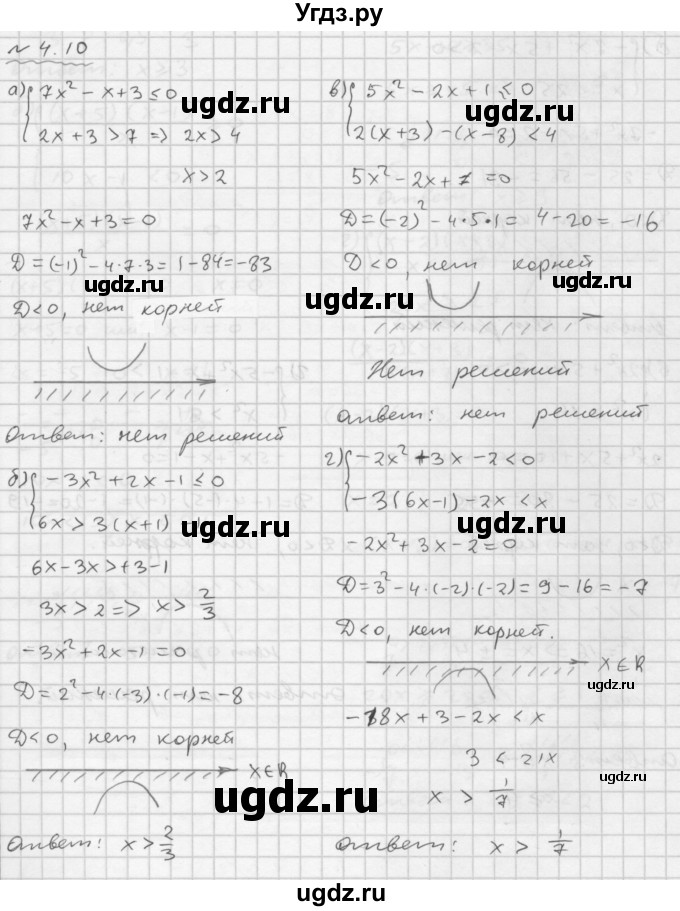 Угдз.ру
№ 4.10
а) { 7x² - x + 3 ≤ 0
2x + 3 > 7 => 2x > 4
x > 2
7x² - x + 3 = 0
D = (-1)² - 4·7·3 = 1 - 84 = -83
D<0, нет корней
Ответ: нет решений
б) { -3x² + 2x - 1 ≤ 0
6x > 3(x+1) - 1
6x - 3x > +3 - 1
3x > 2 => x > 2/3
-3x² + 2x - 1 = 0
D = 2² - 4·(-3)·(-1) = -8
D<0, нет корней
x∈R
Ответ: x > 2/3
в) { 5x² - 2x + 1 ≤ 0
2(x+3) - (x-8) < 4
5x² - 2x + 1 = 0
D = (-2)² - 4·5·1 = 4 - 20 = -16
D<0, нет корней
Нет решений
ответ: нет решений
г) { -2x² + 3x - 2 < 0
-3(6x-1) - 2x < x
-2x² + 3x - 2 = 0
D = 3² - 4·(-2)·(-2) = 9 - 16 = -7
D<0, нет корней.
x∈R
-18x + 3 - 2x < x
3 < 21x
x > 1/7
ответ: x > 1/7
ugdz.ru
ugdz.ru
ugdz.ru
ugdz.ru
ugdz.ru
ugdz.ru
ugdz.ru
ugdz.ru
ugdz.ru
ugdz.ru
ugdz.ru
ugdz.ru
ugdz.ru